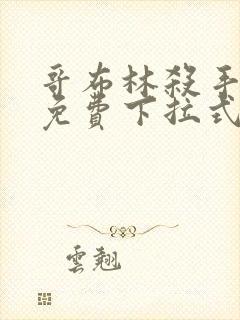 哥布林殺手
免費下拉式
雲翹